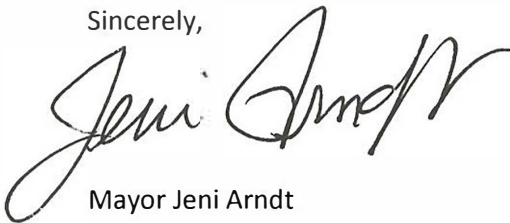 Sincerely,
Jeni Arndt
Mayor Jeni Arndt